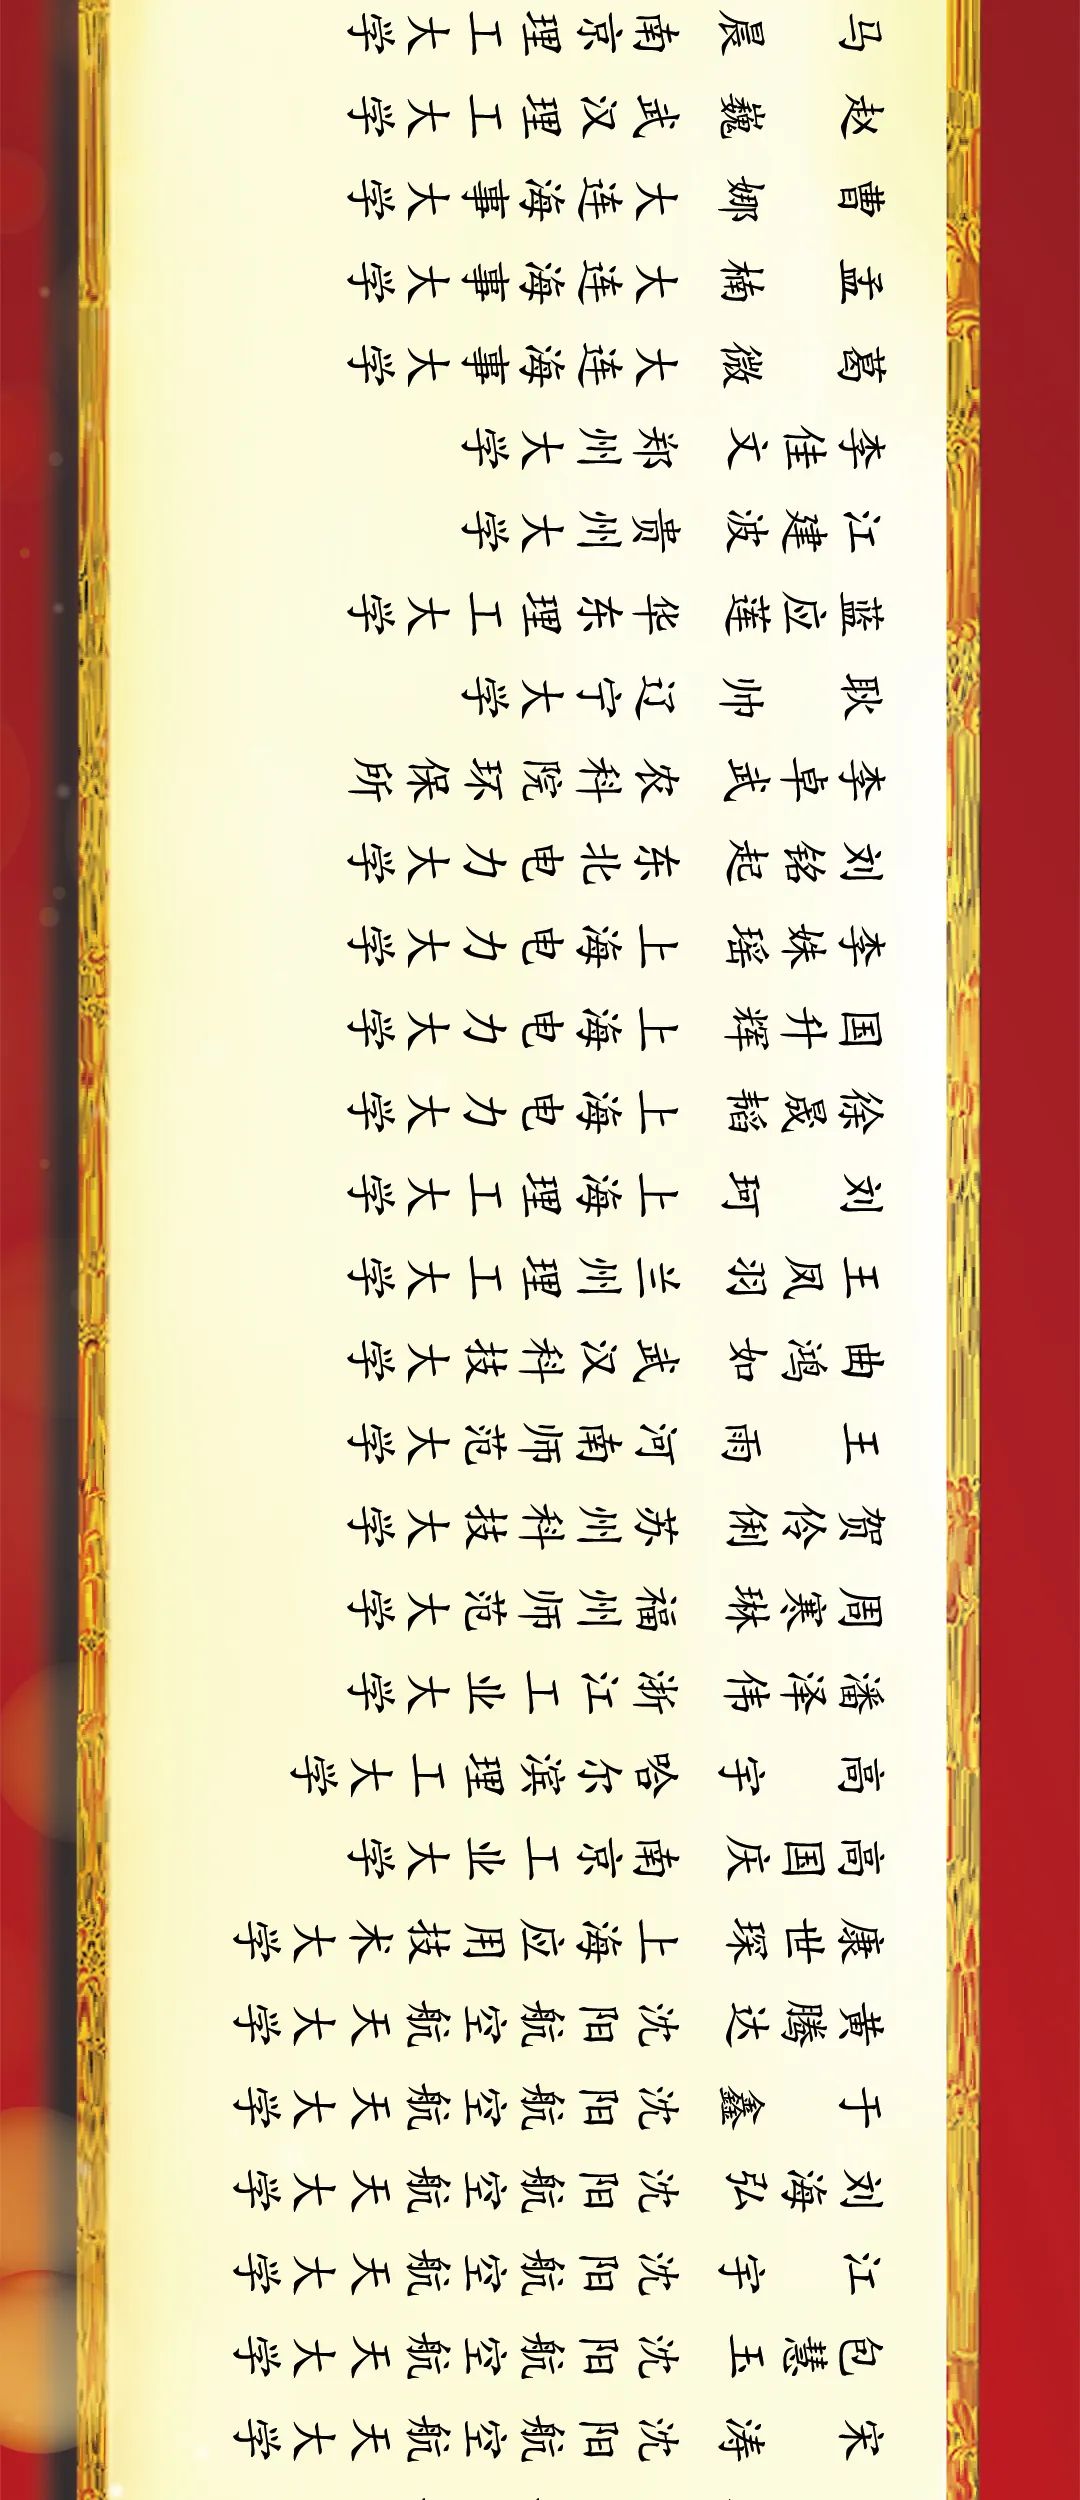 马晨 南京理工大学
赵巍 武汉理工大学
曹娜 大连海事大学
孟楠 大连海事大学
葛微 大连海事大学
李佳文 郑州大学
江建波 贵州大学
蓝应莲 华东理工大学
耿帅 辽宁大学
李卓武 农科院环保所
刘铭起 东北电力大学
李姝瑶 上海电力大学
国升辉 上海电力大学
徐晟韬 上海电力大学
刘珂 上海理工大学
王凤羽 兰州理工大学
曲鸿如 武汉科技大学
王雨 河南师范大学
贺伶俐 苏州科技大学
周寒琳 福州师范大学
潘泽伟 浙江工业大学
高宇 哈尔滨理工大学
高国庆 南京工业大学
康世琛 上海应用技术大学
黄腾达 沈阳航空航天大学
于鑫 沈阳航空航天大学
刘海弘 沈阳航空航天大学
江宇 沈阳航空航天大学
包慧玉 沈阳航空航天大学
宋涛 沈阳航空航天大学